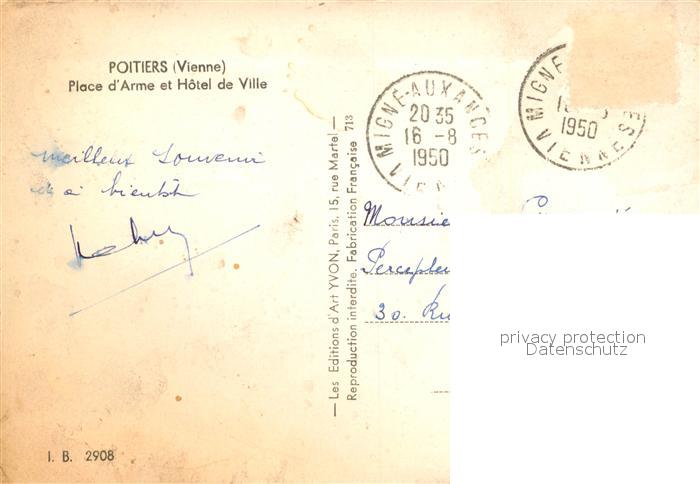 POITIERS (Vienne)
Place d'Arme et Hôtel de Ville
meilleur souvenir
à bientôt
— Les Editions d'Art YVON, Paris, 15, rue Martel —
Reproduction interdite. Fabrication Française 713
MIGNE-AUXANCES
20 35
16 -8
1950
VIENN
MIGNE
1950
VIENNE
Monsie
Percepteu
30. Ru
privacy protection
Datenschutz
I. B. 2908